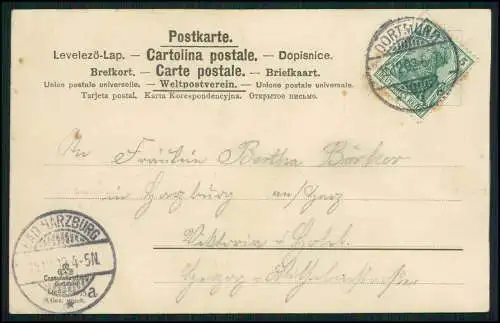 Postkarte.
Levelező-Lap. — Cartolina postale. — Dopisnice.
Brefkort. — Carte postale. — Briefkaart.
Union postale universelle. — Weltpostverein. — Unione postale universale.
Tarjeta postal. Karta Korespondencyjna. Открытое письмо.
DORTMUND
An Fräulein Bertha Börker
in Harzburg am/Harz
Viktoria Hotel
Herzog-Wilhelmstrasse
BAD HARZBURG
4-5N.
a